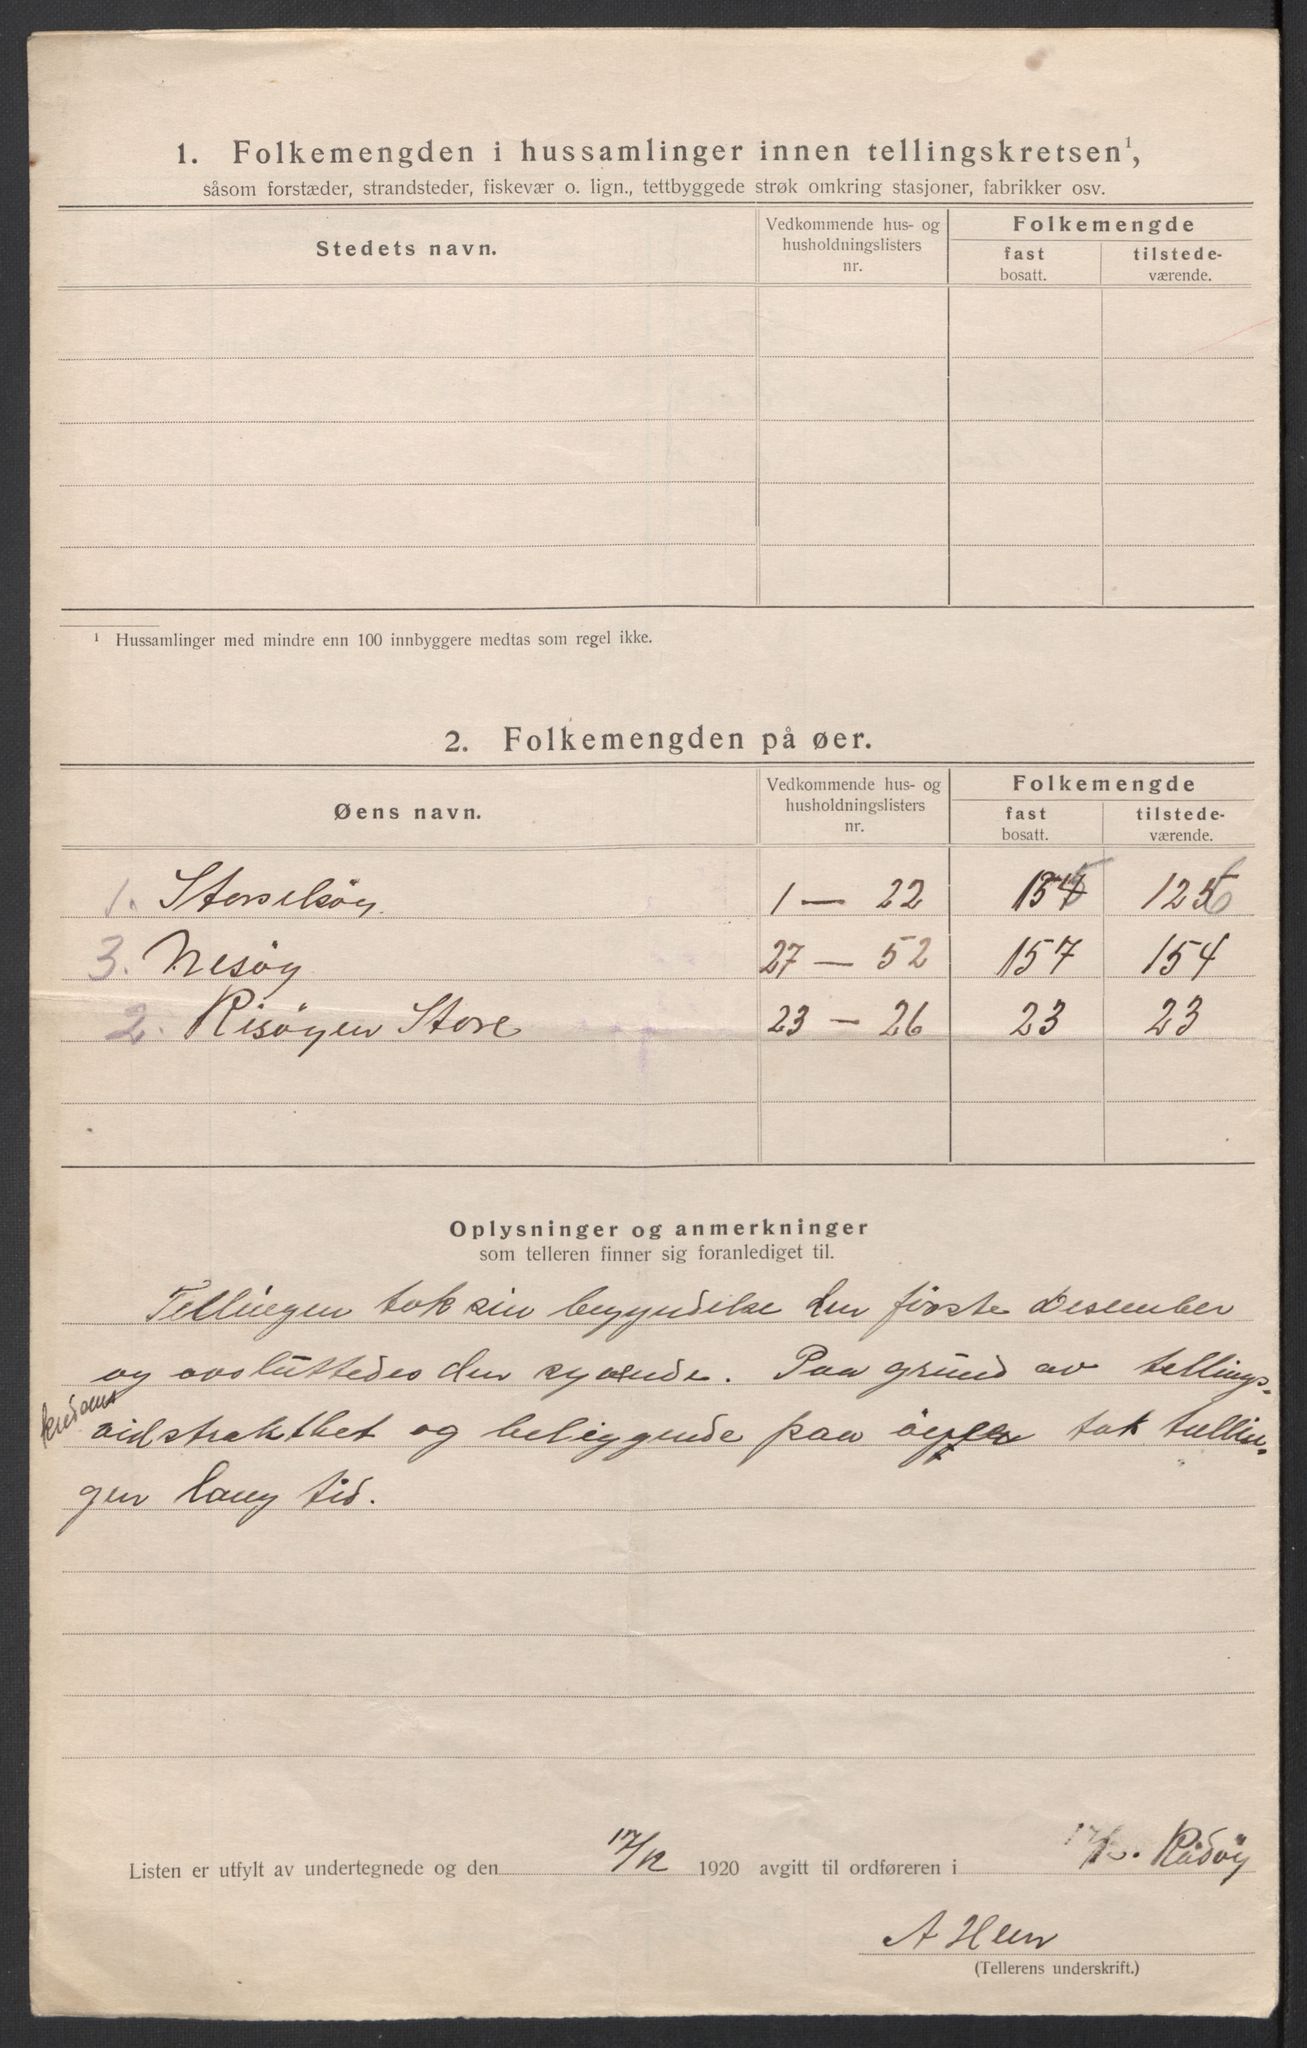 1. Folkemengden i hussamlinger innen tellingskretsen¹,
såsom forstæder, strandsteder, fiskevær o. lign., tettbyggede strøk omkring stasjoner, fabrikker osv.
Stedets navn.
Vedkommende hus- og
husholdningslisters
nr.
Folkemengde
fast
bosatt.
tilstede-
værende.
¹ Hussamlinger med mindre enn 100 innbyggere medtas som regel ikke.
2. Folkemengden på øer.
Øens navn.
Vedkommende hus- og
husholdningslisters
nr.
Folkemengde
fast
bosatt.
tilstede-
værende.
1. Storselsöy 1 — 22 126
3. Nesöy 27 — 52 157 154
2. Risöyen Store 23 — 26 23 23
Oplysninger og anmerkninger
som telleren finner sig foranlediget til.
Tellingen tok sin begyndelse den förste desember
og avsluttedes den syvende. Paa grund av tellings-
kredsens
vidstrakthet og beliggende paa öyer tok tellin-
gen lang tid.
Listen er utfylt av undertegnede og den 17/12 1920 avgitt til ordføreren i Rödöy
A Heen
(Tellerens underskrift.)